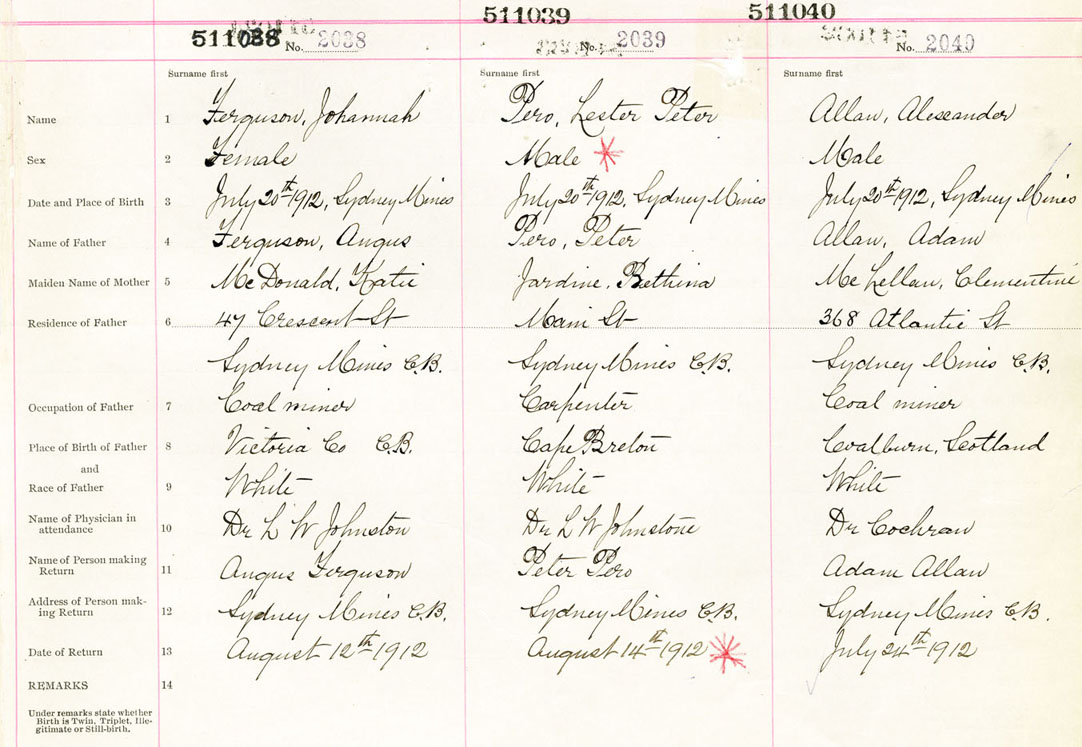 511038 511039 511040
No. 2038 No. 2039 No. 2040
Surname first Surname first Surname first
Name 1 Ferguson, Johannah Pero, Lester Peter Allan, Alexander
Sex 2 Female Male Male
Date and Place of Birth 3 July 20th 1912, Sydney Mines July 20th 1912, Sydney Mines July 20th 1912, Sydney Mines
Name of Father 4 Ferguson, Angus Pero, Peter Allan, Adam
Maiden Name of Mother 5 McDonald, Katie Jardine, Bethina McLellan, Clementine
Residence of Father 6 47 Crescent St Main St 368 Atlantic St
Sydney Mines C.B. Sydney Mines C.B. Sydney Mines C.B.
Occupation of Father 7 Coal miner Carpenter Coal miner
Place of Birth of Father 8 Victoria Co C.B. Cape Breton Coalburn, Scotland
and
Race of Father 9 White White White
Name of Physician in
attendance 10 Dr L W Johnston Dr L W Johnstone Dr Cochran
Name of Person making
Return 11 Angus Ferguson Peter Pero Adam Allan
Address of Person mak-
ing Return 12 Sydney Mines C.B. Sydney Mines C.B. Sydney Mines C.B.
Date of Return 13 August 12th 1912 August 14th 1912 July 24th 1912
REMARKS 14
Under remarks state whether
Birth is Twin, Triplet, Ille-
gitimate or Still-birth.